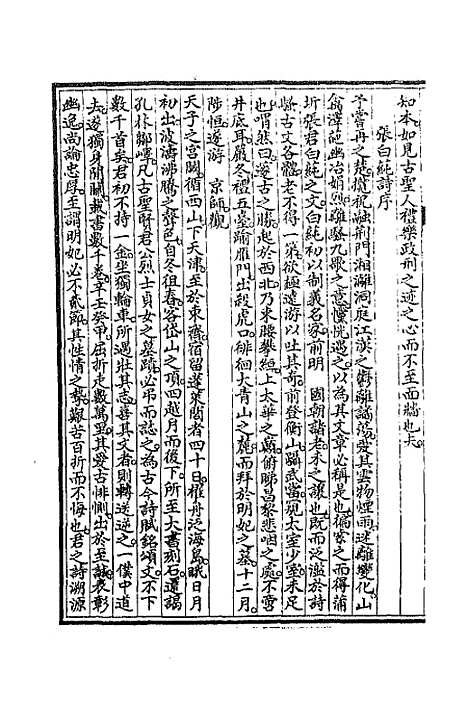 知本如見古聖人禮樂政刑之迹之心而不至面牆也夫
張白純詩序
予嘗再之楚攬祝融荆門湘灕洞庭江漢之鬱離譎蕩要其雲物煙雨迷離變化山
翕澤葩幽冶娟烈離騷九歌之意懭恍遇之以為其文章必稱是也偏索之而得蒲
圻張君白純之文白純初以制義名家前明　國朝諸老未之讓也既而泛濫於詩
餘古文各體老不得一第欲極遠游以吐其奇前登衡山躡武當覘太室少室未足
也喟然曰遂古之勝起於西北乃東歷攀絙上太華之巔俯睇昌黎悲咽之處不啻
井底耳嚴冬禮五臺踰雁門出殺虎口徘徊大青山之麓而拜於明妃之墓十二月
陟恒遂游　京師觀
天子之宮闕循西山下天津至於東齋宿留蓬萊閣者四十日櫂舟泛海島眂日月
初出波濤沸騰之聲色自冬徂春客岱山之頂四越月而後下所至大書刻石還謁
孔林鄒嶧凡古聖賢君公烈士貞女之墓蹟必弔而誌之為古今詩賦銘頌文不下
數千首矣君初不持一金坐獨輪車所遇壯其志喜其文者則轉送逆之一僕中道
去遂獨身間關載書數千卷辛壬癸甲屈折走數萬里其愛古悱惻出於至誠表彰
幽逸尚論忠厚至謂明妃必不貳節其性情之摯艱苦百折而不悔也君之詩溯源